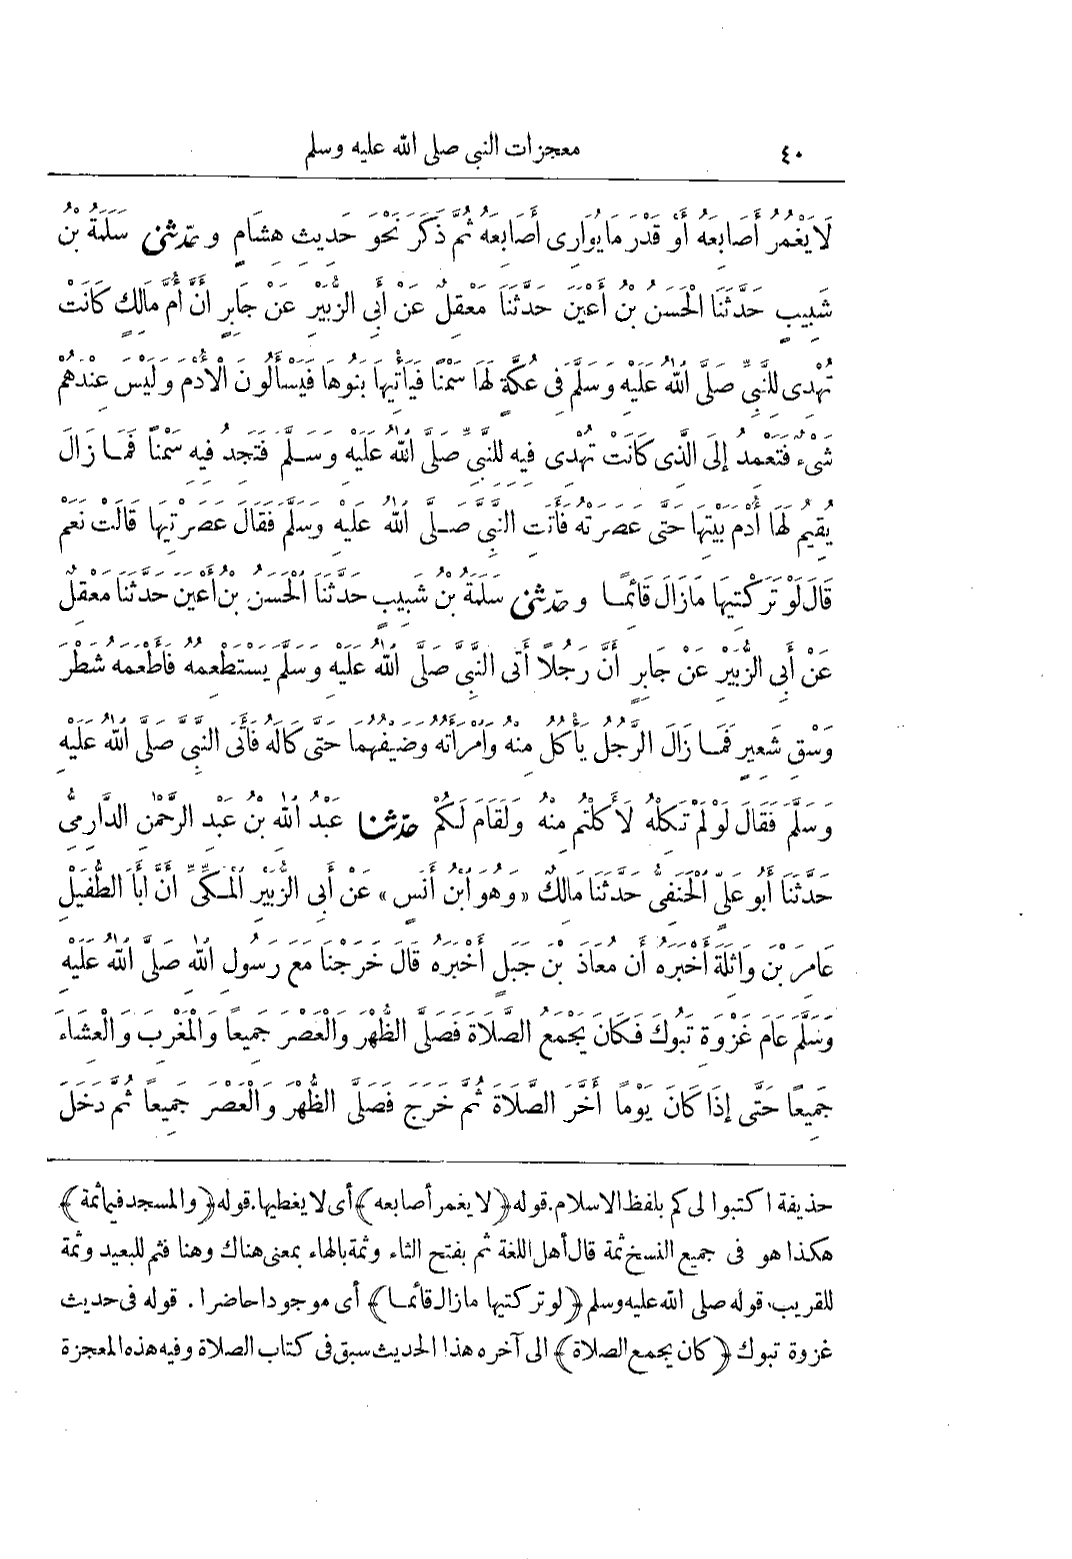 ٤٠ معجزات النبى صلى الله عليه وسلم
لَا يَغْمُرُ أَصَابِعَهُ أَوْ قَدْرَ مَا يُوَارِى أَصَابِعَهُ ثُمَّ ذَكَرَ نَحْوَ حَدِيثِ هِشَامٍ و حَدّثنى سَلَمَةُ بْنُ
شَبِيبٍ حَدَّثَنَا الْحَسَنُ بْنُ أَعْيَنَ حَدَّثَنَا مَعْقِلٌ عَنْ أَبِى الزُّبَيْرِ عَنْ جَابِرٍ أَنَّ أُمَّ مَالِكٍ كَانَتْ
تُهْدِى لِلنَّبِيِّ صَلَّى اللهُ عَلَيْهِ وَسَلَّمَ فِى عُكَّةٍ لَهَا سَمْنًا فَيَأْتِيهَا بَنُوهَا فَيَسْأَلُونَ الْأُدْمَ وَلَيْسَ عِنْدَهُمْ
شَىْءٌ فَتَعْمِدُ إِلَى الَّذِى كَانَتْ تُهْدِى فِيهِ لِلنَّبِيِّ صَلَّى اللهُ عَلَيْهِ وَسَلَّمَ فَتَجِدُ فِيهِ سَمْنًا فَمَا زَالَ
يُقِيمُ لَهَا أُدْمَ بَيْتِهَا حَتَّى عَصَرَتْهُ فَأَتَتِ النَّبِيَّ صَلَّى اللهُ عَلَيْهِ وَسَلَّمَ فَقَالَ عَصَرْتِيهَا قَالَتْ نَعَمْ
قَالَ لَوْ تَرَكْتِيهَا مَازَالَ قَائِمًا و حَدّثنى سَلَمَةُ بْنُ شَبِيبٍ حَدَّثَنَا الْحَسَنُ بْنُ أَعْيَنَ حَدَّثَنَا مَعْقِلٌ
عَنْ أَبِى الزُّبَيْرِ عَنْ جَابِرٍ أَنَّ رَجُلًا أَتَى النَّبِيَّ صَلَّى اللهُ عَلَيْهِ وَسَلَّمَ يَسْتَطْعِمُهُ فَأَطْعَمَهُ شَطْرَ
وَسْقِ شَعِيرٍ فَمَا زَالَ الرَّجُلُ يَأْكُلُ مِنْهُ وَامْرَأَتُهُ وَضَيْفُهُمَا حَتَّى كَالَهُ فَأَتَى النَّبِيَّ صَلَّى اللهُ عَلَيْهِ
وَسَلَّمَ فَقَالَ لَوْ لَمْ تَكِلْهُ لَأَكَلْتُمْ مِنْهُ وَلَقَامَ لَكُمْ حَدّثنا عَبْدُ اللهِ بْنُ عَبْدِ الرَّحْمٰنِ الدَّارِمِىُّ
حَدَّثَنَا أَبُو عَلِيٍّ الْحَنَفِىُّ حَدَّثَنَا مَالِكٌ «وَهُوَ ابْنُ أَنَسٍ» عَنْ أَبِى الزُّبَيْرِ الْمَكِّىِّ أَنَّ أَبَا الطُّفَيْلِ
عَامِرَ بْنَ وَاثِلَةَ أَخْبَرَهُ أَنَّ مُعَاذَ بْنَ جَبَلٍ أَخْبَرَهُ قَالَ خَرَجْنَا مَعَ رَسُولِ اللهِ صَلَّى اللهُ عَلَيْهِ
وَسَلَّمَ عَامَ غَزْوَةِ تَبُوكَ فَكَانَ يَجْمَعُ الصَّلَاةَ فَصَلَّى الظُّهْرَ وَالْعَصْرَ جَمِيعًا وَالْمَغْرِبَ وَالْعِشَاءَ
جَمِيعًا حَتَّى إِذَا كَانَ يَوْمًا أَخَّرَ الصَّلَاةَ ثُمَّ خَرَجَ فَصَلَّى الظُّهْرَ وَالْعَصْرَ جَمِيعًا ثُمَّ دَخَلَ
حذيفة اكتبوا لى كم بلفظ الاسلام. قوله ﴿لا يغمر أصابعه﴾ أى لا يغطيها. قوله ﴿والمسجد فيما ثمة﴾
هكذا هو فى جميع النسخ ثمة قال أهل اللغة ثم بفتح الثاء وثمة بالهاء بمعنى هناك وهنا فثم للبعيد وثمة
للقريب. قوله صلى الله عليه وسلم ﴿لو تركتيها مازال قائما﴾ أى موجودا حاضرا. قوله فى حديث
غزوة تبوك ﴿كان يجمع الصلاة﴾ الى آخره هذا الحديث سبق فى كتاب الصلاة وفيه هذه المعجزة